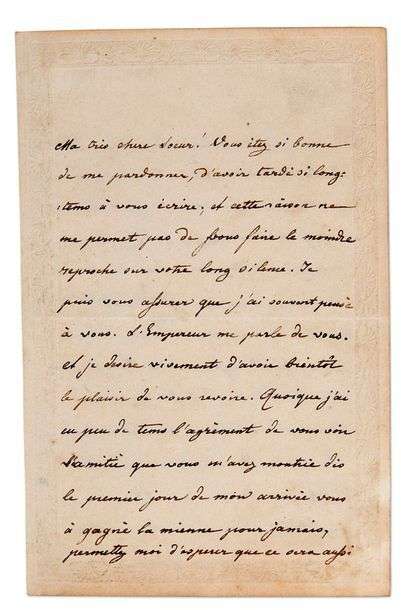 Ma très chere Soeur! Vous etez si bonne
de me pardonner, d'avoir tardé si long:
:tems à vous écrire, et cette raison ne
me permet pas de vous faire le moindre
reproche sur votre long silence. Je
puis vous assurer que j'ai souvent pensé
à vous. L'Empereur me parle de vous.
et je desire vivement d'avoir bientôt
le plaisir de vous revoire. Quoique j'ai
eu peu de tems l'agrèment de vous voir
l'amitié que vous m'avez montrée dès
le premier jour de mon arrivée vous
à gagné la mienne pour jamais,
permettez moi d'esperer que ce sera aussi